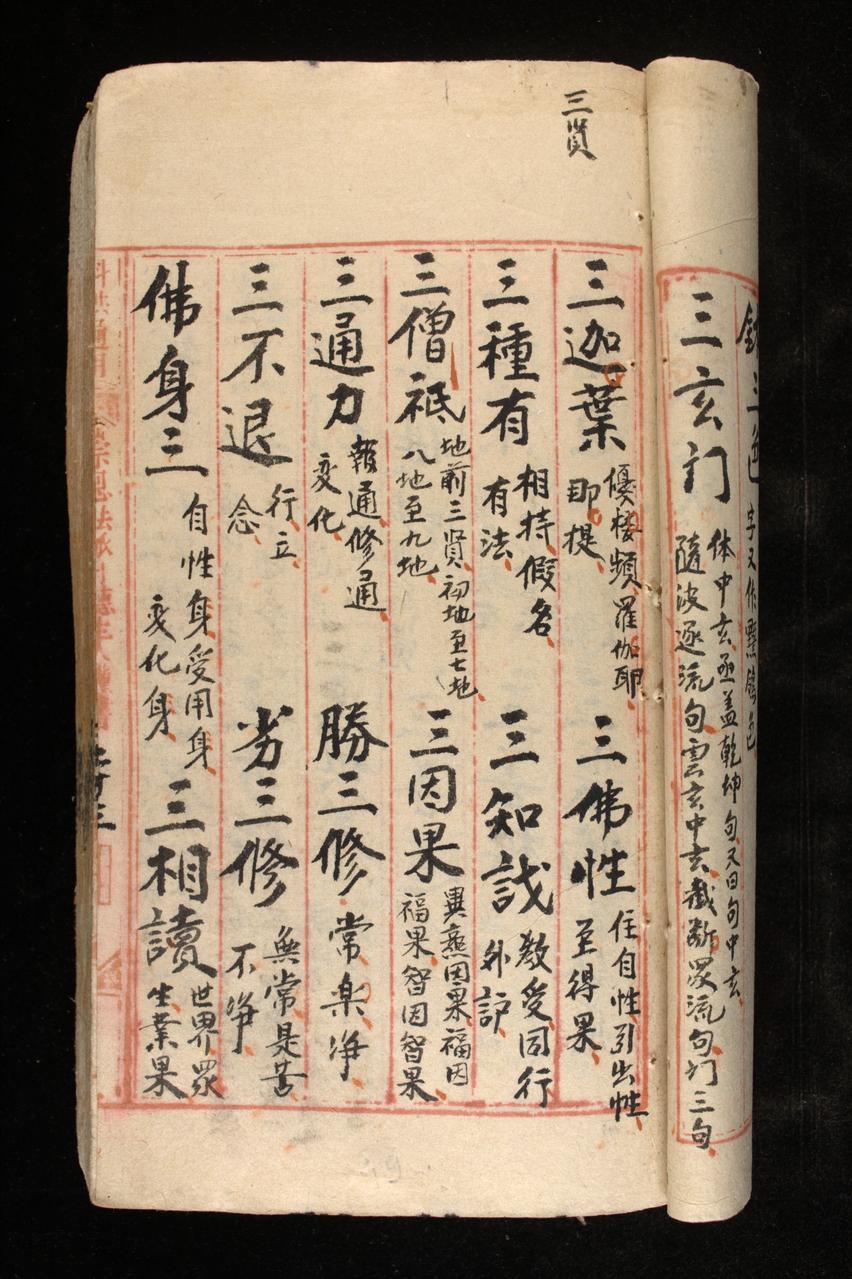 三色 字又作黑鴿色
三玄门 体中玄函盖乾坤句又曰句中玄
隨波逐流句雲玄中玄截断众流句门三句
三贤
三迦葉 優楼頻羅伽耶
即提
三佛性 住自性引出性
至得果
三種有 相持假名
有法
三知识 教受同行
外护
三僧祇 地前三贤初地至七地
八地至九地
三因果 異熟因果福因
福果智因智果
三通力 報通修通
変化
勝三修 常楽净
三不退 行立
念
劣三修 無常是苦
不净
佛身三 自性身受用身
変化身
三相讀 世界众
生業果